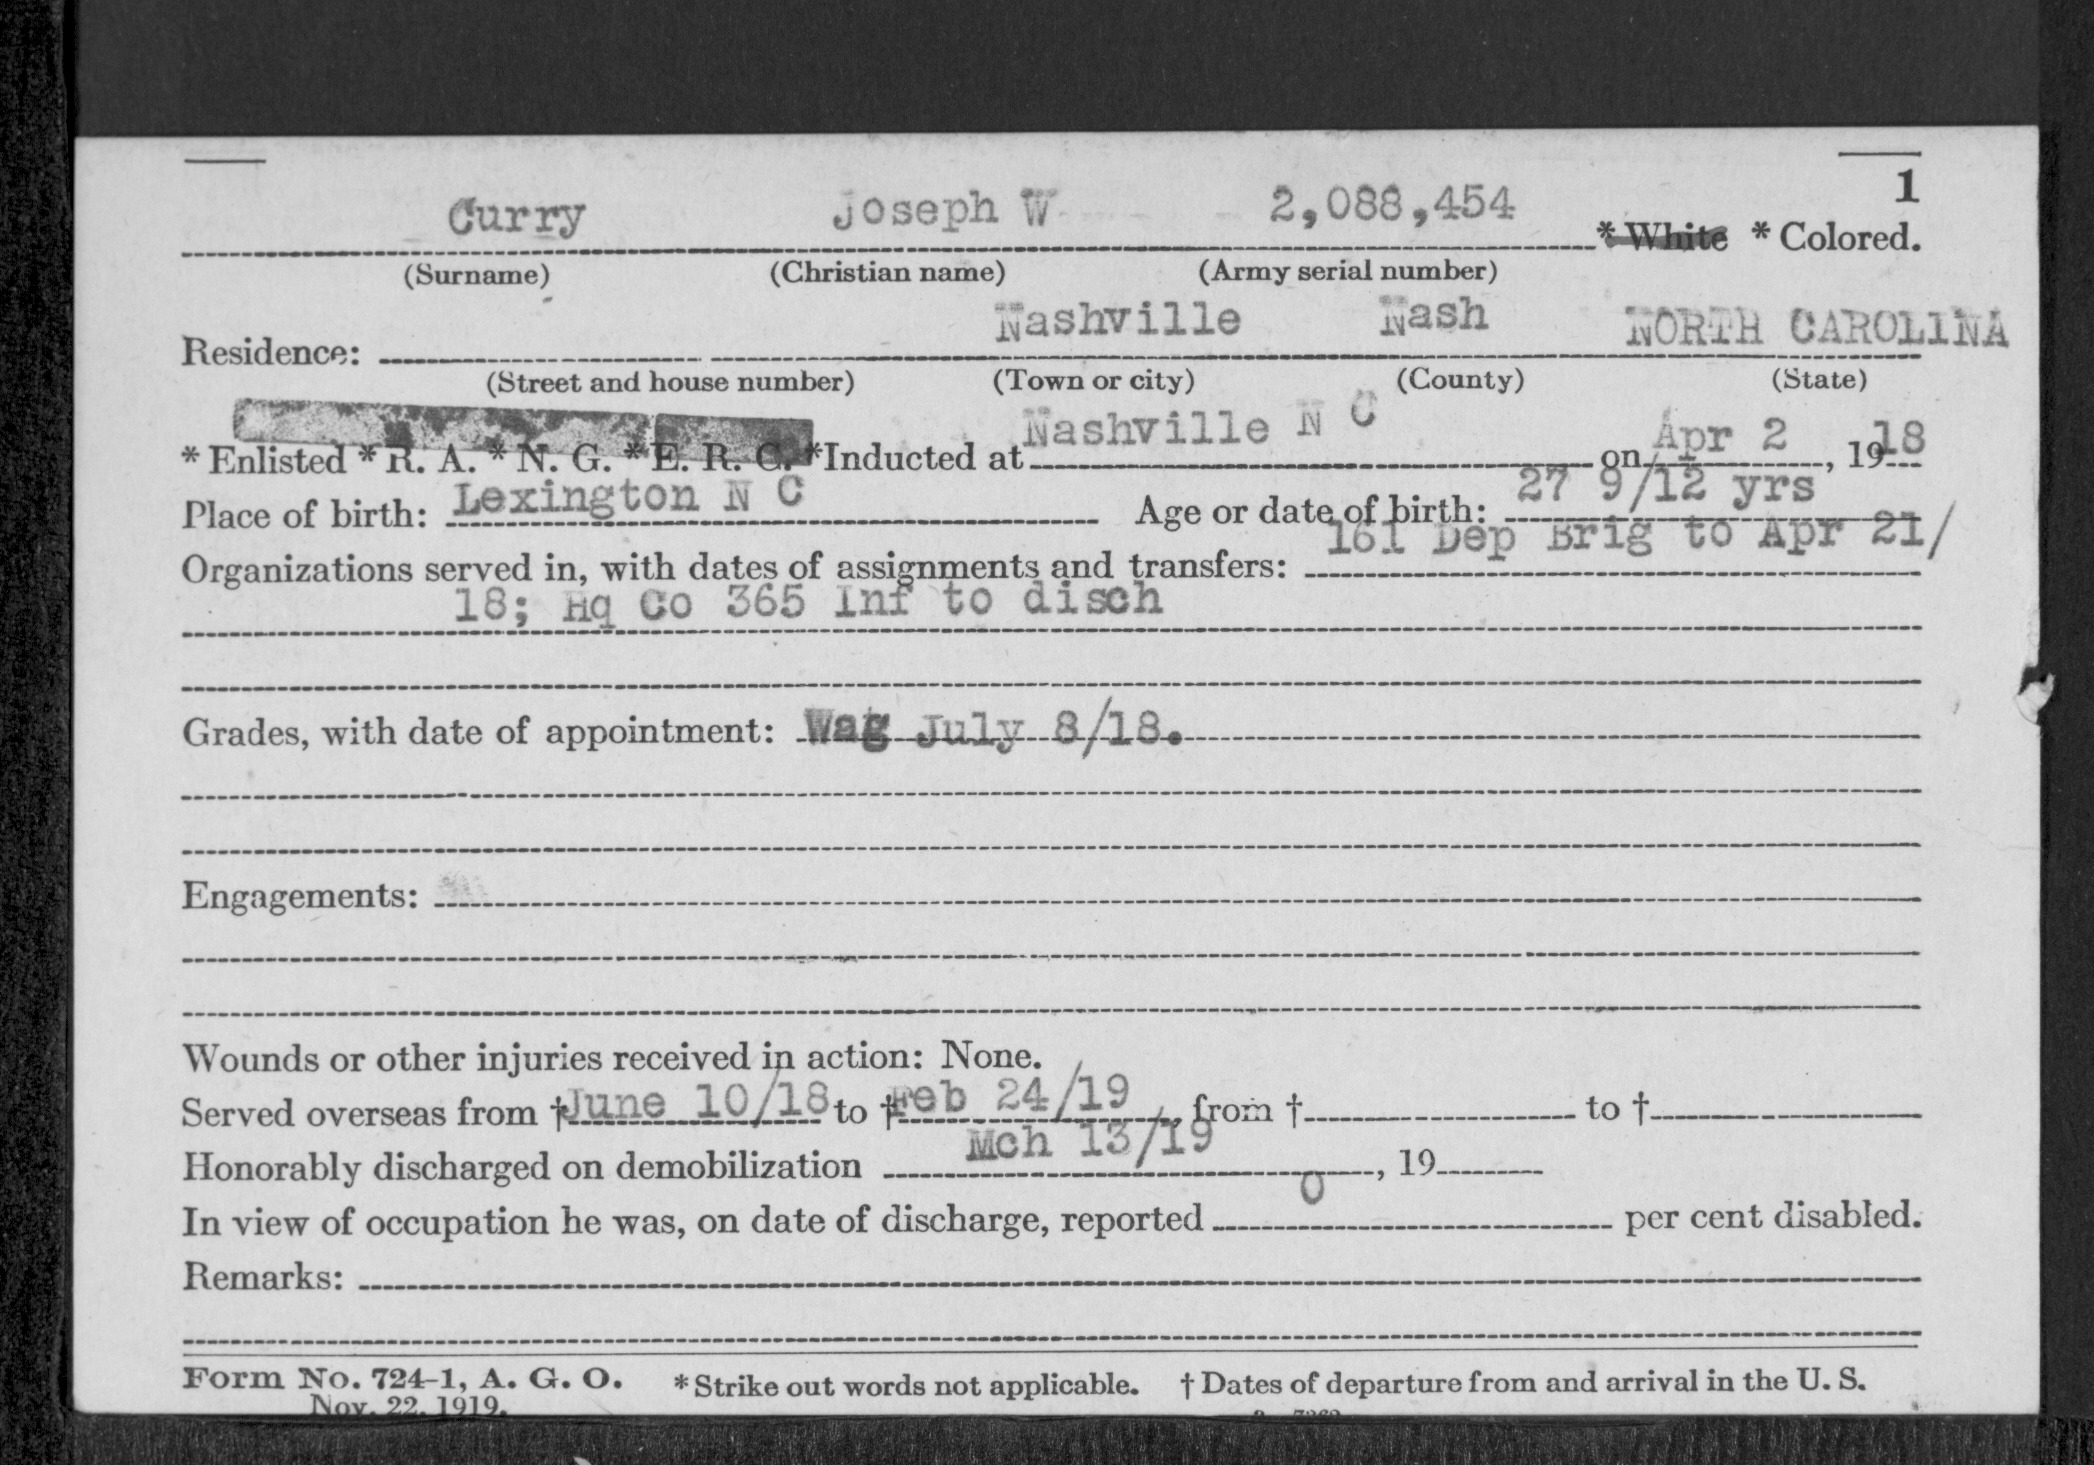 1
Curry Joseph W 2,088,454 * White * Colored.
(Surname) (Christian name) (Army serial number)
Nashville Nash NORTH CAROLINA
Residence:
(Street and house number) (Town or city) (County) (State)
* Enlisted * R. A. * N. G. * E. R. C. * Inducted at Nashville N C on Apr 2, 1918
Place of birth: Lexington N C Age or date of birth: 27 9/12 yrs
Organizations served in, with dates of assignments and transfers: 161 Dep Brig to Apr 21/
18; Hq Co 365 Inf to disch
Grades, with date of appointment: Wag July 8/18.
Engagements:
Wounds or other injuries received in action: None.
Served overseas from † June 10/18 to † Feb 24/19, from † to †
Honorably discharged on demobilization Mch 13/19, 19
In view of occupation he was, on date of discharge, reported 0 per cent disabled.
Remarks:
Form No. 724-1, A. G. O. * Strike out words not applicable. † Dates of departure from and arrival in the U. S.
Nov. 22, 1919.